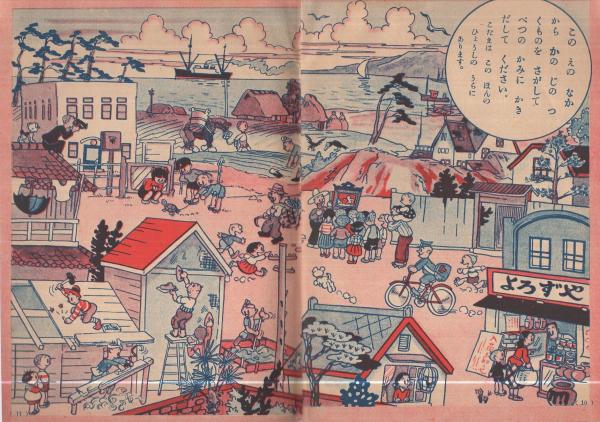 この えの なか
から かの じの つ
くものを さがして
べつの かみに かき
だして ください。
こたえは この ほんの
ひょうしの うらに
あります。
よろずや
( 10 )
( 11 )